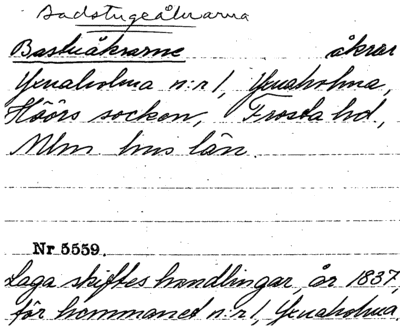 Badstugeåkrarna
Bastuåkrarne åkrar
Yenaholma n:r 1, Yenaholma,
Höörs socken, Frosta hd,
Mlm hus län.
Nr 5559.
Laga skiftes handlingar, år 1837,
för hemmanet n:r 1, Yenaholma.